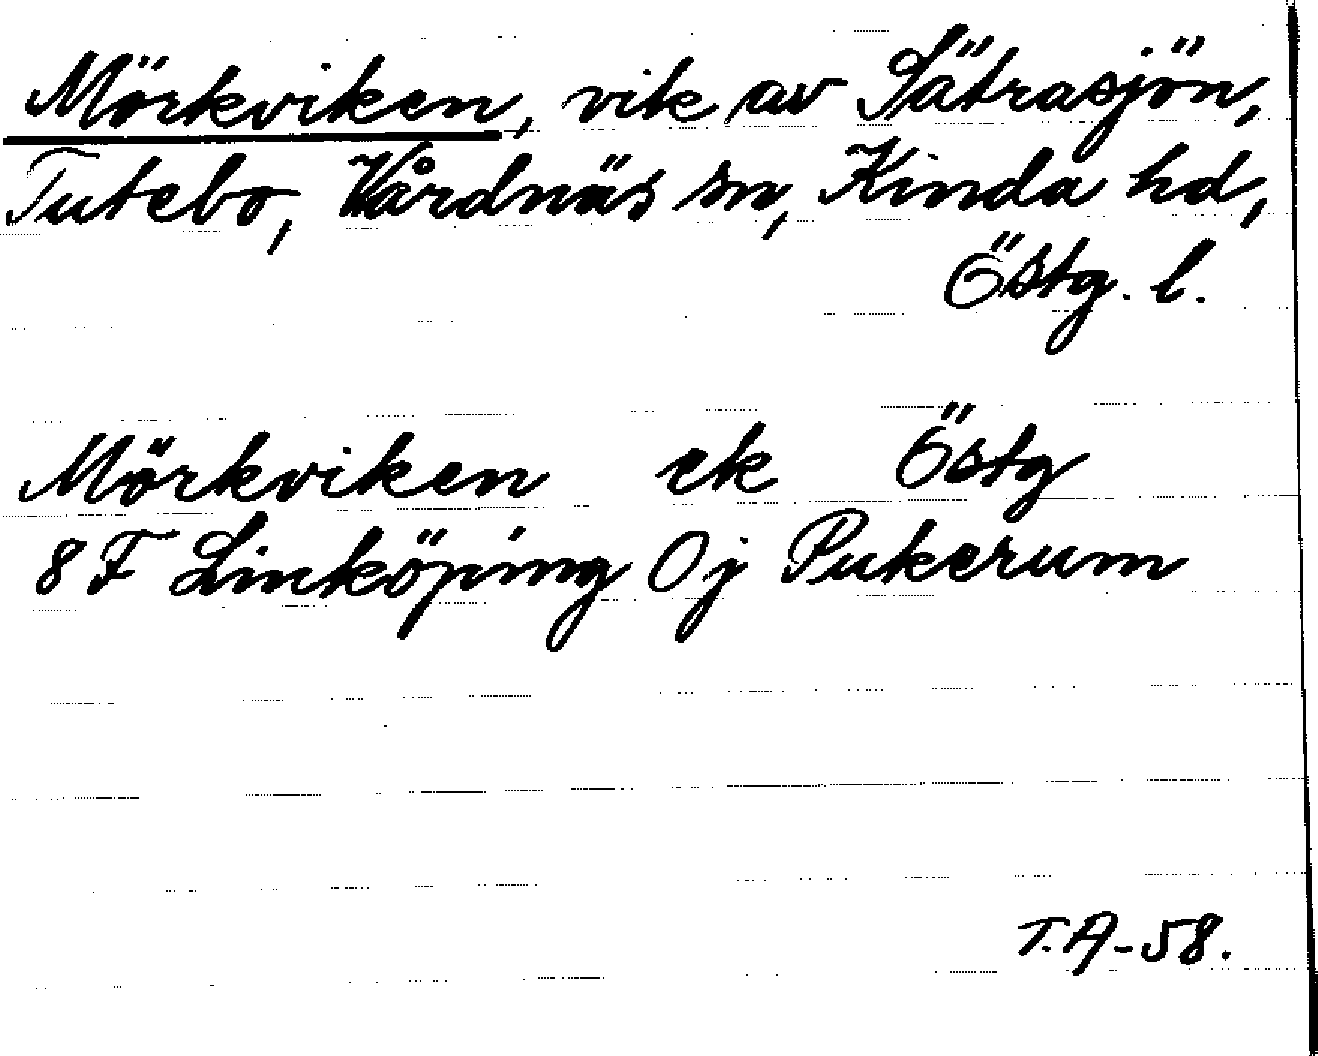 Mörkviken, vik av Sätrasjön,
Tutebo, Vårdnäs sn, Kinda hd,
Östg. l.
Mörkviken ek Östg
8 F Linköping Oj Pukerum
T.A-58.